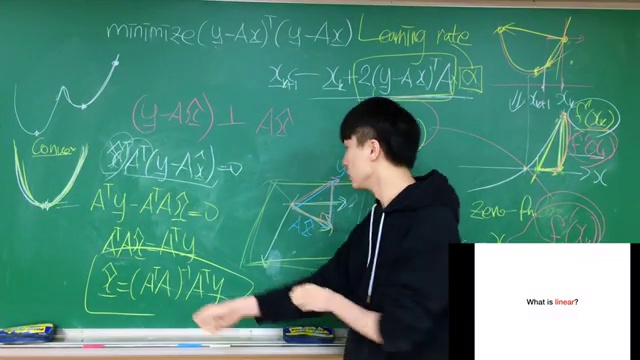 minimize (y-Ax)ᵀ(y-Ax)
Learning rate
x_{k+1} ← x_k + 2(y-Ax)ᵀA α
(y-Ax̂) ⊥ Ax̂
Convex
x̂ᵀAᵀ(y-Ax̂)=0
Aᵀy-AᵀAx̂=0
AᵀAx̂=Aᵀy
x̂=(AᵀA)⁻¹Aᵀy
Ax̂
x_{k+1} x_k
f'(x_k)
f(x_k)
x
f(x_k)
What is linear?